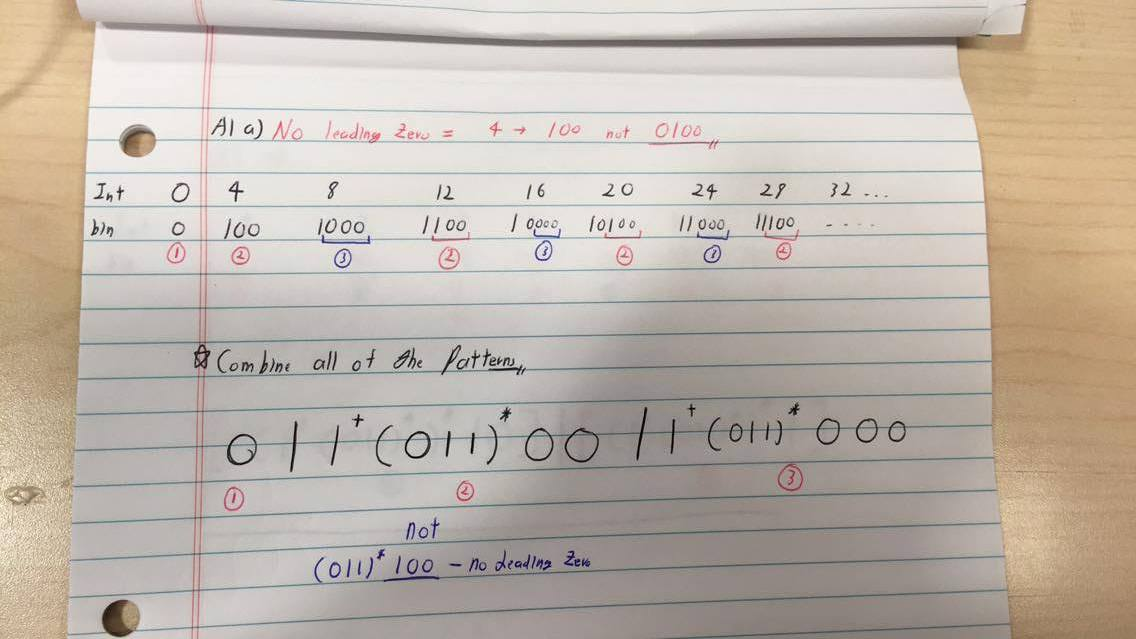 A1 a) No leading Zero = 4 → 100 not 0100
Int 0 4 8 12 16 20 24 28 32 ...
bin 0 100 1000 1100 10000 10100 11000 11100 ....
① ② ③ ② ③ ② ③ ②
☆ Combine all of the Patterns
0 | 1⁺(0|1)*00 | 1⁺(0|1)*000
① ② ③
not
(0|1)*100 - no Leading Zero